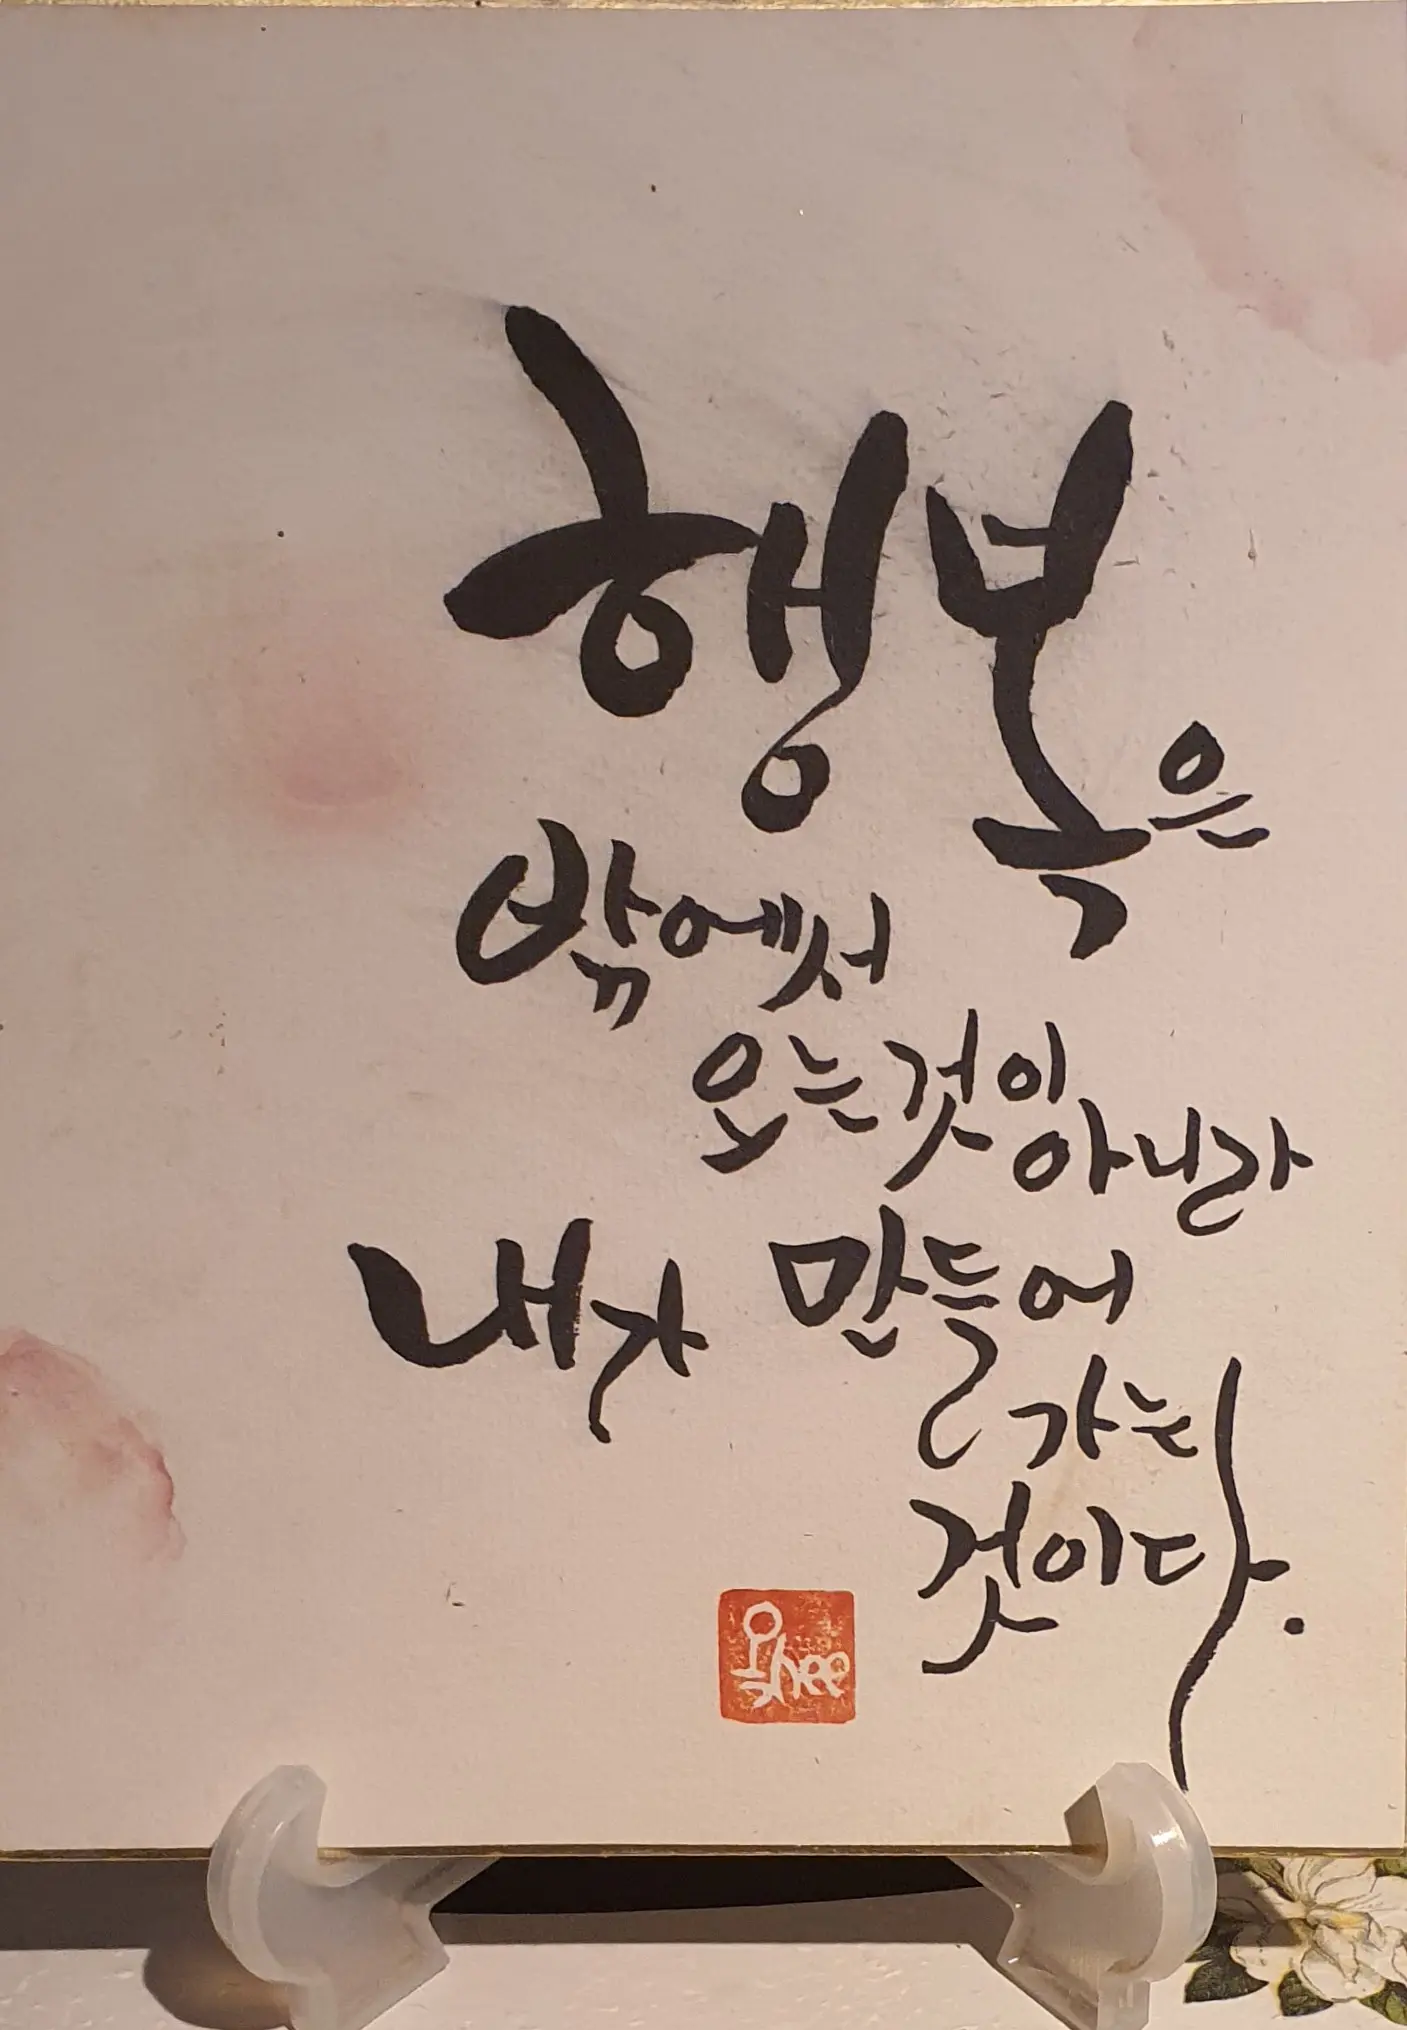 행복은
밖에서
오는것이
아니라
내가 만들어
가는
것이다.